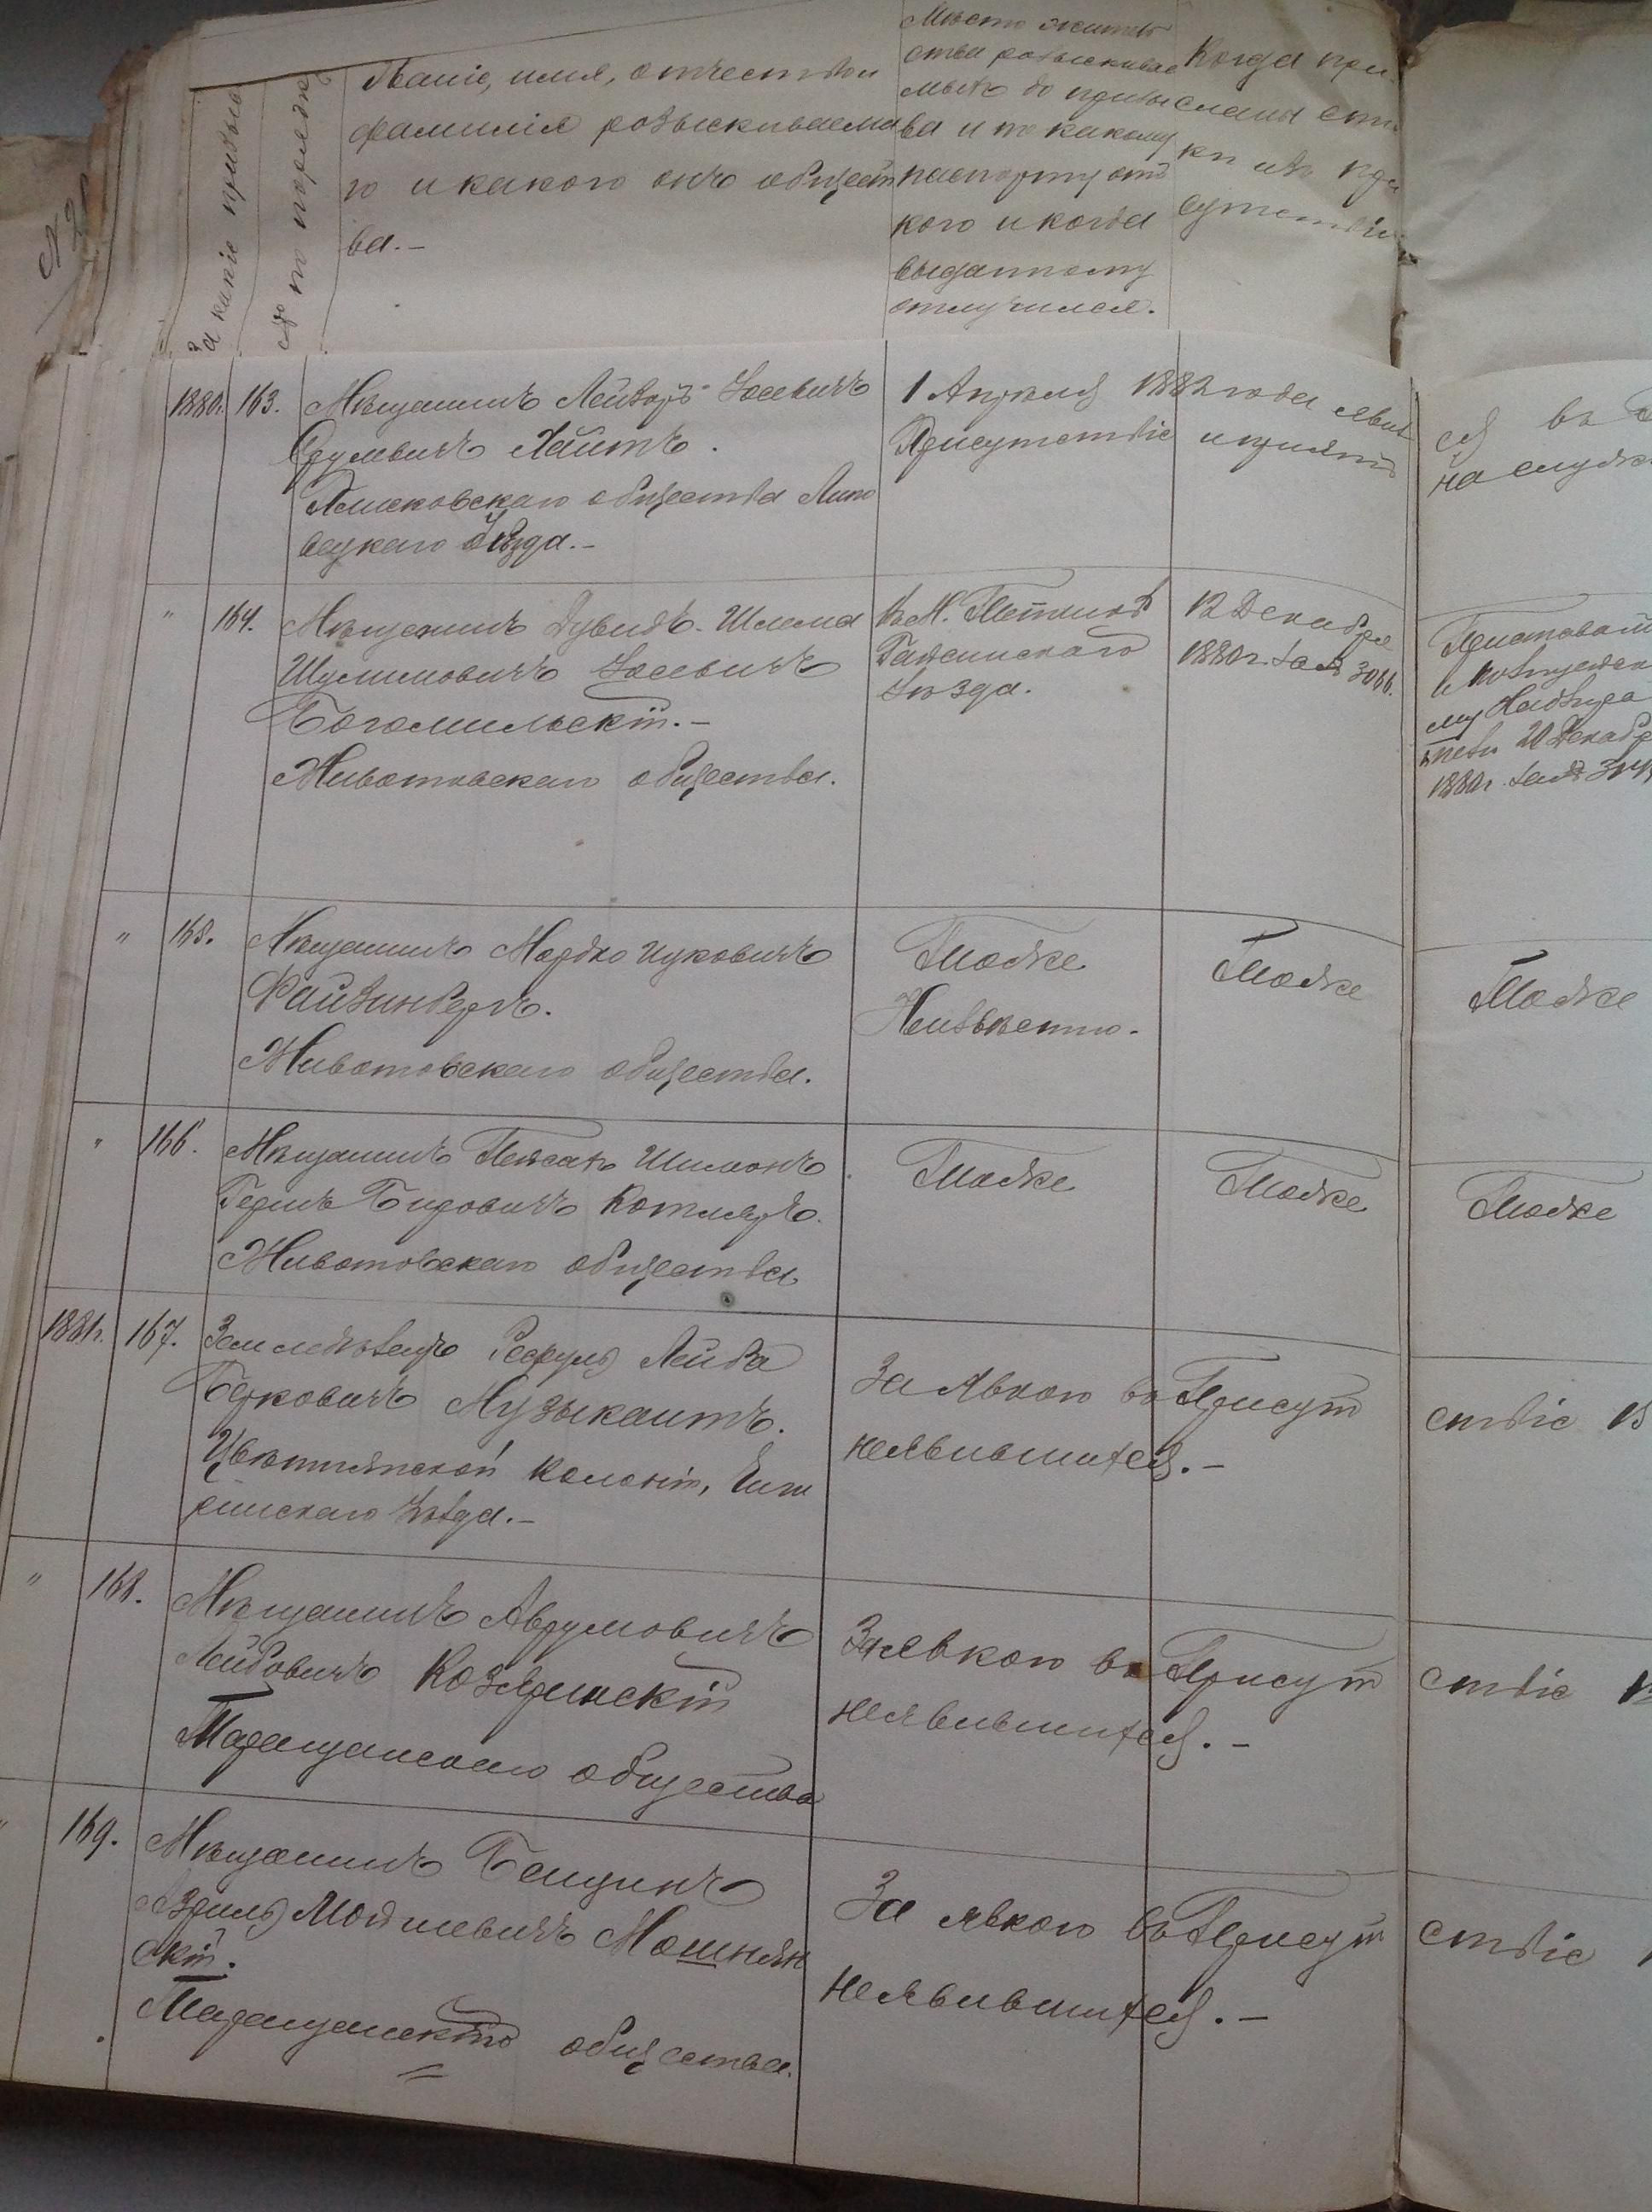 За какіе призывы
№ по порядку
Званіе, имя, отчество и
фамилія розыскиваема
го и какого онъ общест
ва.-
Мѣсто житель
ства розыскивае
маго до призы
ва и по какому
паспорту отъ
кого и когда
выданному
отлучился.
Когда при
сланы спис
ки изъ При
сутствія
1880г. 163. Мѣщанинъ Лейзоръ Іосевичъ
Срулевичъ Хаитъ.
общества Липо
вецкаго уѣзда.-
1 Апрѣля 1882 года явил
ся въ
Присутствіе и принятъ
на служ
" 164. Мѣщанинъ Дувидъ-Шлема
Шулимовичъ Іосевичъ
Богомильскій.-
Животовскаго общества.
Въ М.
Гайсинскаго
уѣзда.
12 Декабря
1880г. за № 3066.
20 Декабр
1880г. за №
" 165. Мѣщанинъ Мордко Ицковичъ
Файзинбергъ.
Животовскаго общества.
Тоже
Неизвѣстно.
Тоже
Тоже
" 166. Мѣщанинъ Пейсахъ Шимонъ
Гершъ Бировичъ Котляръ.
Животовскаго общества
Тоже
Тоже
Тоже
1881г. 167. Земледѣлецъ Сруль Лейба
Берковичъ Музыкантъ.
колоніи,
уѣзда.-
За явкою въ Присут
ствіе
неявившійся.-
" 168. Мѣщанинъ Аврумовичъ
Лейбовичъ Козяринскій
Таращанскаго общества
За явкою въ Присут
ствіе
неявившійся.-
" 169. Мѣщанинъ Бенцинъ
Азриль Мошкевичъ Мошнян
скій.
Таращанскаго общества.
За явкою въ Присут
ствіе
неявившійся.-